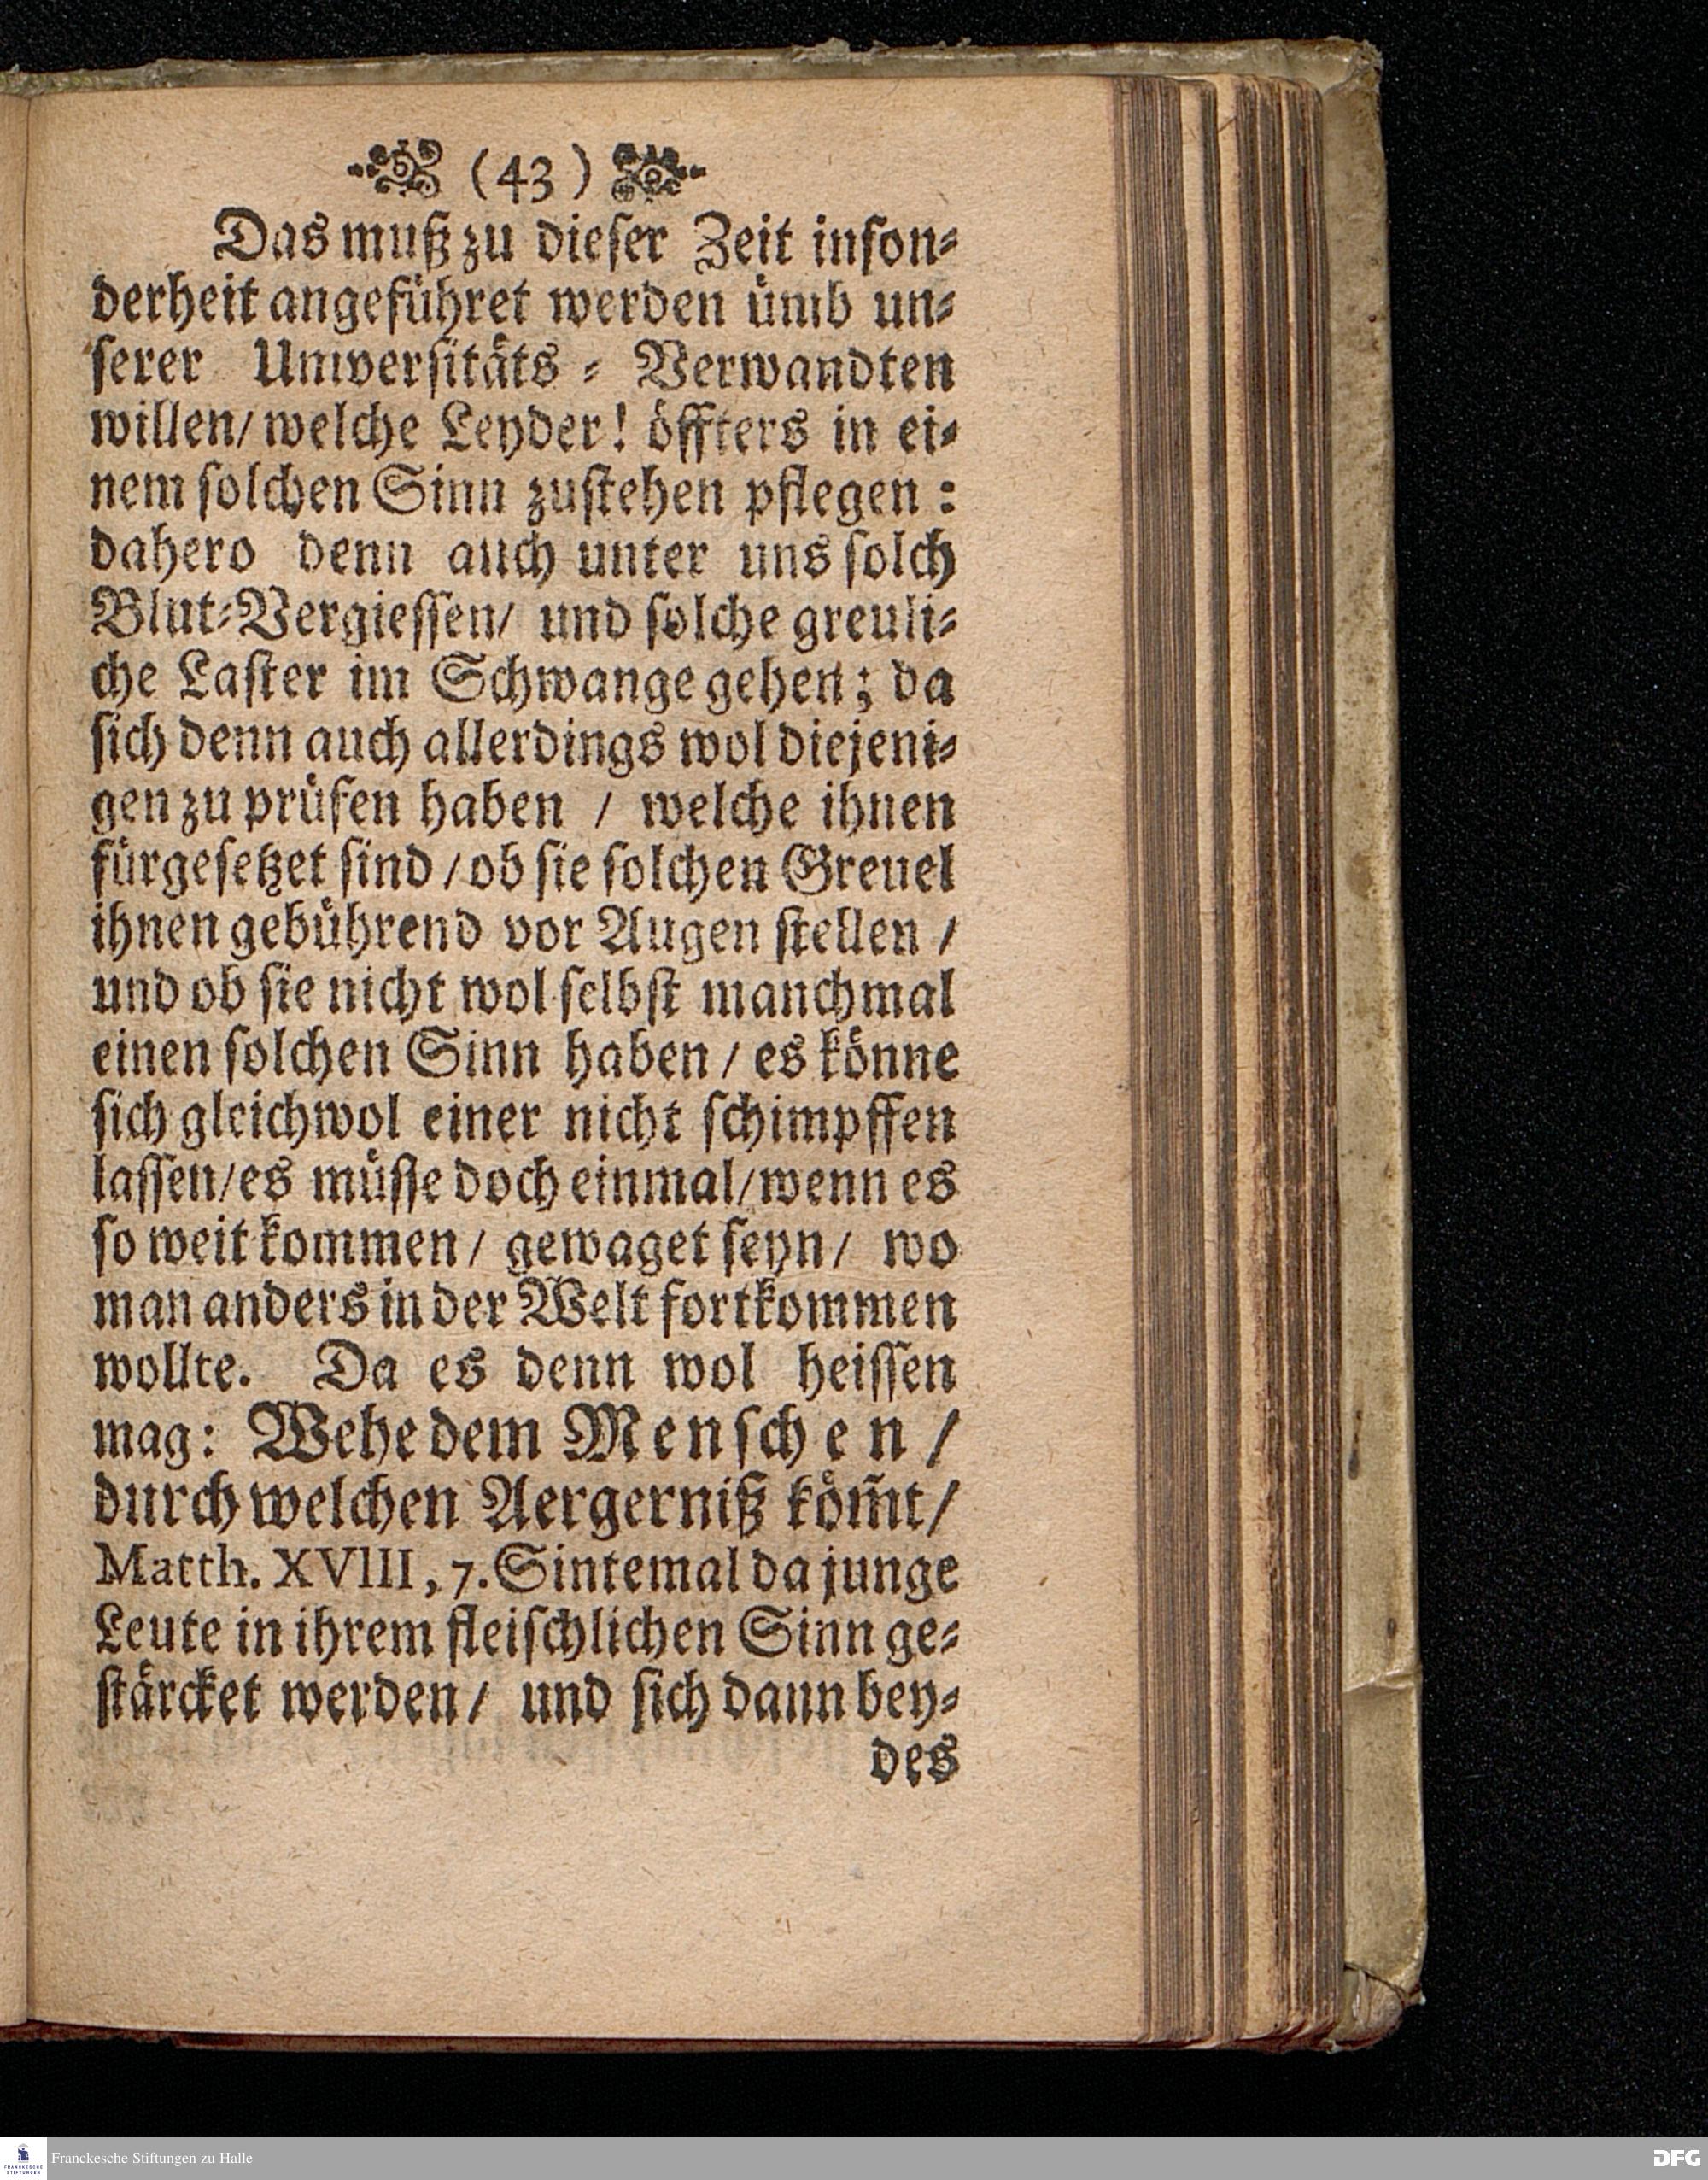 (43)
Das muß zu dieser Zeit inson⸗
derheit angeführet werden ümb un⸗
serer Universitäts⸗Verwandten
willen/ welche Leyder! öffters in ei⸗
nem solchen Sinn zustehen pflegen:
dahero denn auch unter uns solch
Blut⸗Vergiessen/ und solche greuli⸗
che Laster im Schwange gehen; da
sich denn auch allerdings wol diejeni⸗
gen zu prüfen haben / welche ihnen
fürgesetzet sind / ob sie solchen Greuel
ihnen gebührend vor Augen stellen /
und ob sie nicht wol selbst manchmal
einen solchen Sinn haben / es könne
sich gleichwol einer nicht schimpffen
lassen/ es müsse doch einmal/ wenn es
so weit kommen/ gewaget seyn/ wo
man anders in der Welt fortkommen
wollte. Da es denn wol heissen
mag: Wehe dem Menschen/
durch welchen Aergerniß köm̃t/
Matth. XVIII, 7. Sintemal da junge
Leute in ihrem fleischlichen Sinn ge⸗
stärcket werden/ und sich dann bey⸗
des
Franckesche Stiftungen zu Halle
FRANCKESCHE
STIFTUNGEN
DFG